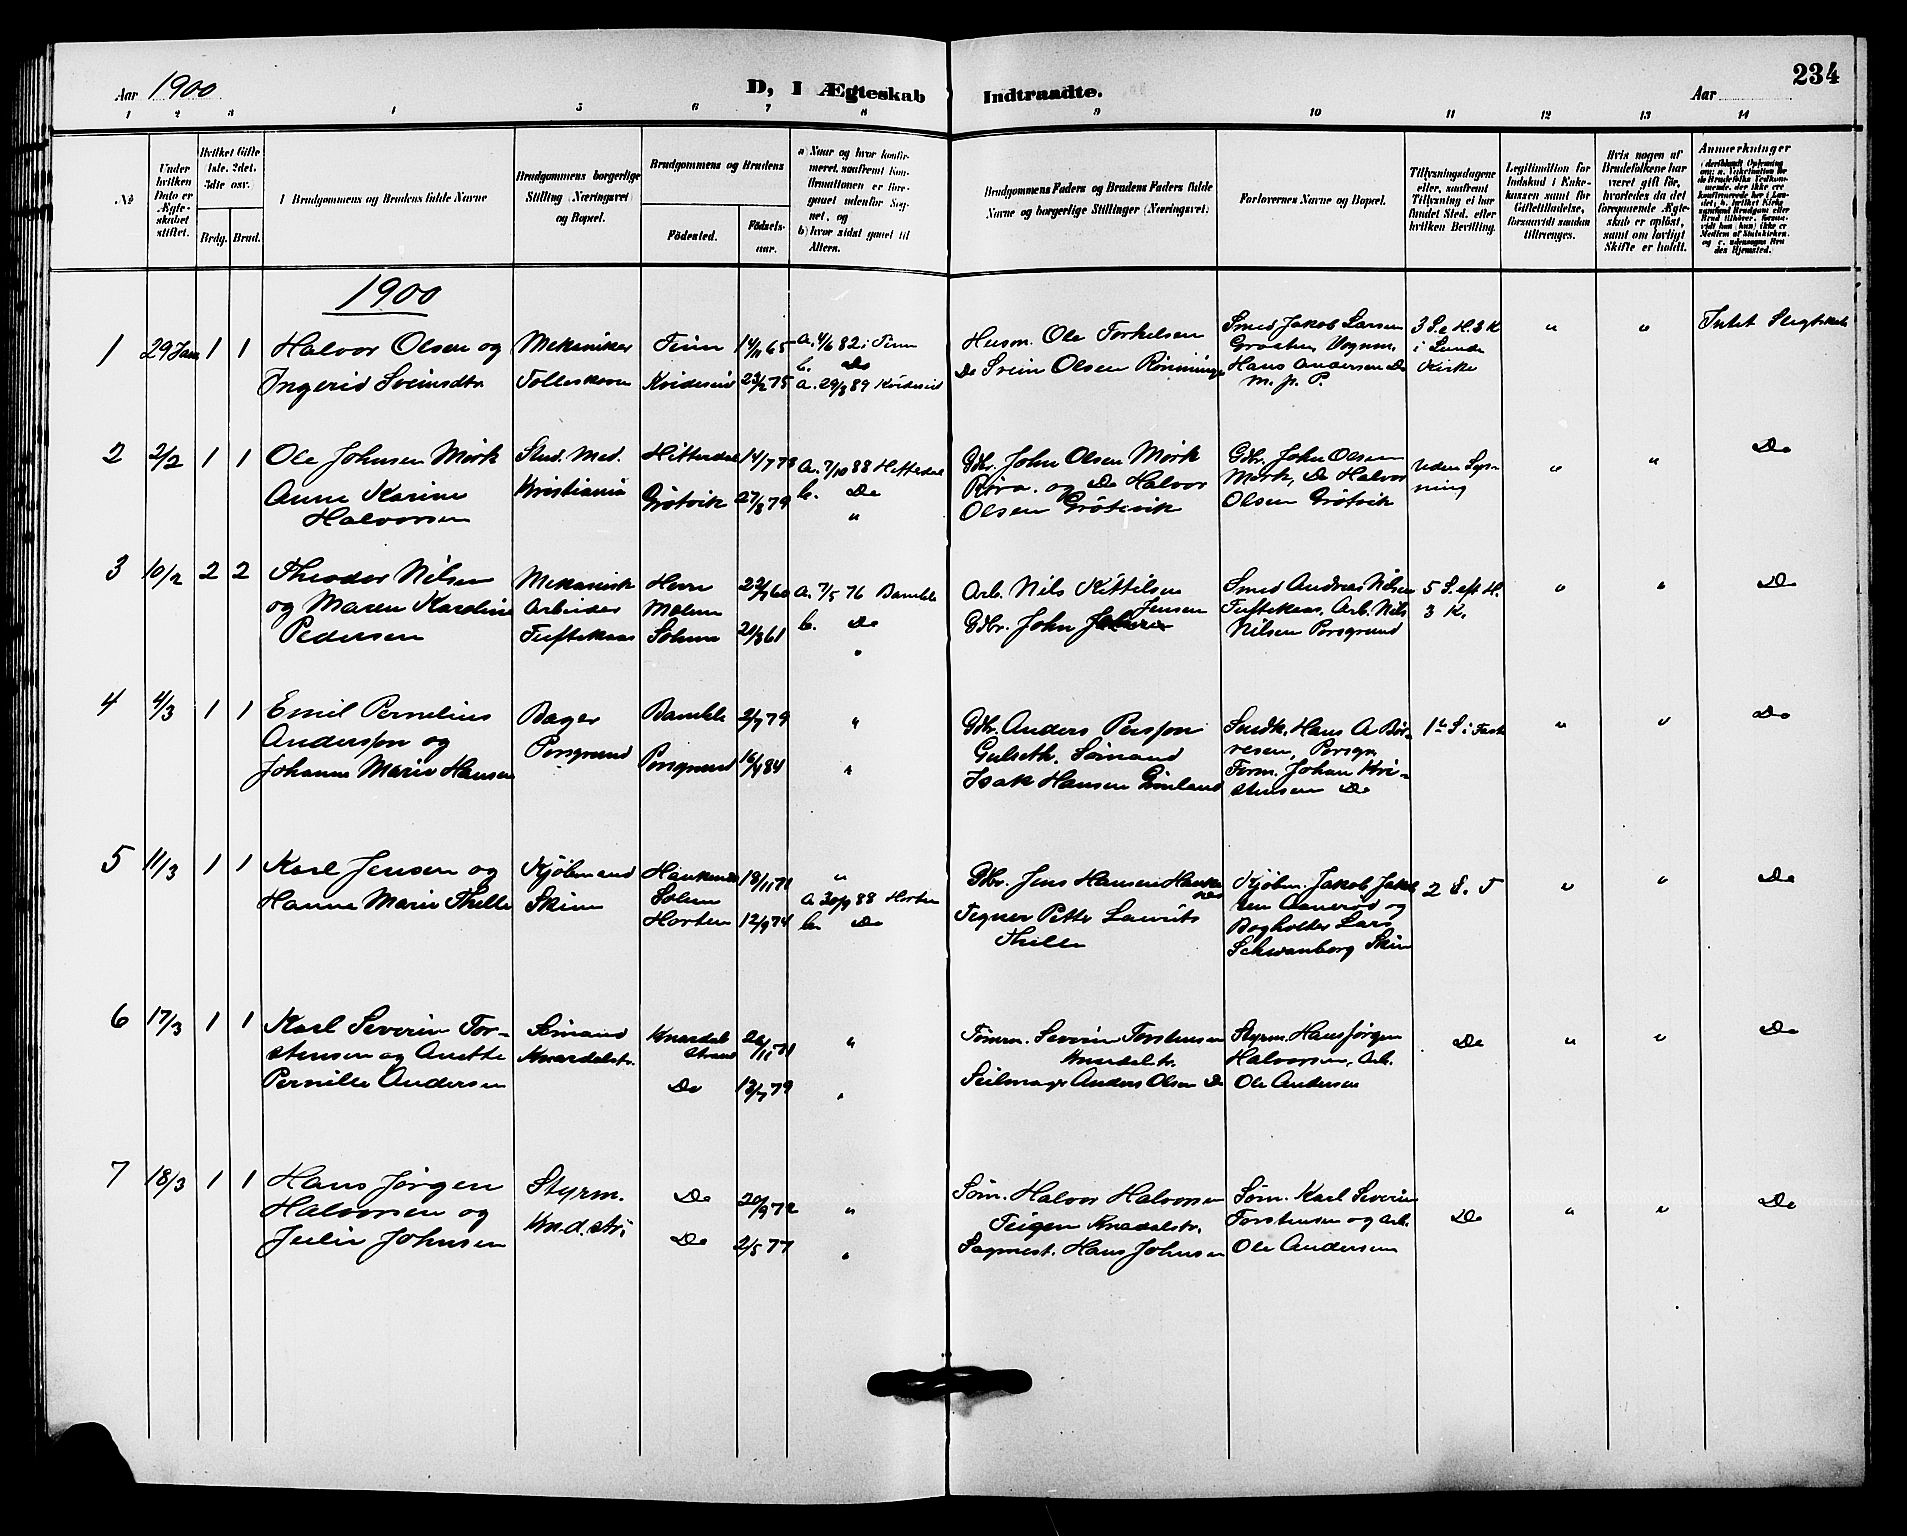 Aar 1900
D, I Ægteskab Indtraadte.
Aar
234
1 2 3 4 5 6 7 8 9 10 11 12 13 14
№
Under hvilken Dato er Ægteskabet stiftet.
Hvilket Gifte 1ste. 2det. 3die osv.
Brdg. Brud.
Brudgommens og Brudens fulde Navne
Brudgommens borgerlige Stilling (Næringsvei) og Bopæl.
Brudgommens og Brudens
Fødested.
Fødselsaar.
a) Naar og hvor konfirmeret, saafremt Konfirmationen er foregaaet udenfor Sognet, og
b) hvor sidst gaaet til Alters.
Brudgommens Faders og Brudens Faders fulde Navne og borgerlige Stillinger (Næringsvei)
Forlovernes Navne og Bopæl.
Tillysningsdagene eller, saafremt Tillysning ei har fundet Sted, efter hvilken Bevilling.
Legitimation for Indskud i Enkekassen samt for Giftetilladelse, forsaavidt saadan tiltrænges.
Hvis nogen af Brudefolkene har været gift før, hvorledes da det foregaaende Ægteskab er opløst, samt om lovligt Skifte er holdt.
Anmerkninger
1900
1 29 Jan 1 1
Halvor Olsen og
Ingerid Sveinsdtr.
Mekaniker
Tolleskoven
Tinn 14/11 65
Kvideseid 23/2 75
a. 4/6 82 i Tinn
b. Do
a. 29/8 89 Kvideseid
Husm. Ole Torkelsen
Do Svein Olsen Rønninge
Smed Jakob Larsen
Graaten, Vognm.
Hans Andersen Do
m. p. P.
3 S. e H. 3 K
i Lunde
Kirke
" "
Intet Slegtskab
2 2/2 1 1
Ole Johnsen Mørk
Anne Karine
Halvorsen
Stud. Med.
Kristiania
Hitterdal 14/7 73
Grötvik 27/8 79
a. 7/10 88 Hitterdal
b. Do
"
Gbr. John Olsen Mørk
og Do Halvor
Olsen Grötvik
Gbr. John Olsen
Mørk, Do Halvor
Olsen Grötvik
Uden Lysning
" "
Do
3 10/2 2 2
Theodor Nilsen
og Maren Karoline
Pedersen
Mekanisk
Arbeider
Tuftekaas
Herre
Molum
Solum 21/3 61
a. 7/5 76 Bamble
b. Do
"
Arb. Nils Kittilsen
Gbr. John Jensen
Smed Andreas Nilsen
Tuftekaas, Arb. Nils
Nilsen Porsgrund
5 S. eft H.
3 K.
" "
Do
4 4/3 1 1
Emil Pernelius
Andersson og
Johanne Marie Hansen
Bager
Porsgrund
Bamble 2/7 79
Porsgrund 16/4 84
"
"
Gbr. Anders Persson
Gulseth. Sømand
Isak Hansen Grønland
Snedk. Hans A Børresen, Porsgr.
Form. Johan Kristensen Do
1ste S. i Faste
" "
Do
5 11/3 1 1
Karl Jensen og
Hanne Marie Thelle
Kjøbmand
Skien
Solum 18/11 71
Horten 12/9 74
"
a 30/9 88 Horten
b. Do
Gbr. Jens Hansen
Tegner Petter Laurits
Thelle
Kjøbm. Jakob Jakobsen Aanerød og
Bogholder Lars
Schwanberg Skien
2 S. F
" "
Do
6 17/3 1 1
Karl Severin Torstensen og Anette
Pernille Andersen
Sømand
Knardalstr.
Knardalstrand 26/11 71
Do 13/7 79
"
"
Tømm. Severin Torstensen
Knardalstr.
Seilmager Anders Olsen Do
Styrm. Hans Jørgen
Halvorsen, Arb.
Ole Andersen
Do
" "
Do
7 18/3 1 1
Hans Jørgen
Halvorsen og
Julie Johnsen
Styrm.
Kn.d.str.
Do 20/9 72
Do 2/5 77
"
"
Søm. Halvor Halvorsen
Teigen Knardalstr.
Sagmest. Hans Johnsen
Søm. Karl Severin
Torstensen og Arb.
Ole Andersen
Do
" "
Do